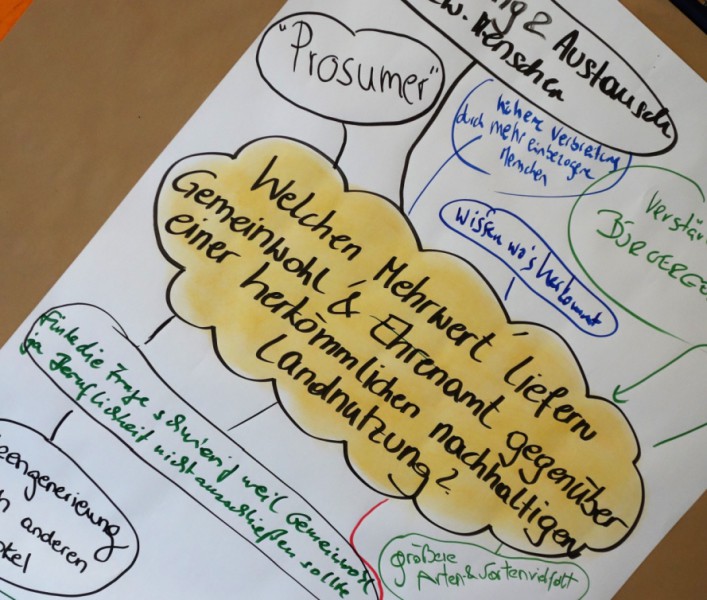 "Prosumer"
ng & Austausch
zw. Menschen
höhere Verbreitung
durch mehr einbezogene
Menschen
wissen wo's herkommt
Verstär
BÜRGERGE
Welchen 'Mehrwert' liefern
Gemeinwohl & Ehrenamt gegenüber
einer herkömmlichen nachhaltigen
Landnutzung?
Finde die Frage schwierig weil Gemeinwohl
ja Beruflichkeit nicht ausschließen sollte
eengenerierung
h anderen
kel
größere
Arten- & Sortenvielfalt